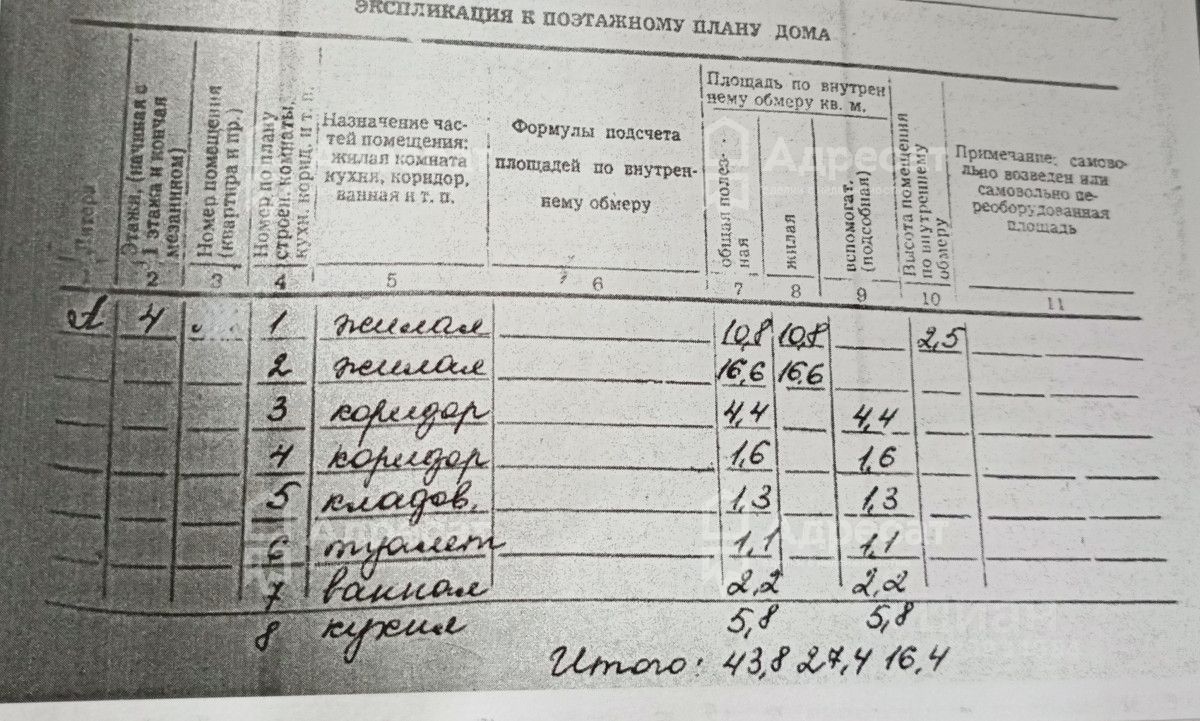 ЭКСПЛИКАЦИЯ К ПОЭТАЖНОМУ ПЛАНУ ДОМА
Литера
Этажи, (начиная с
1 этажа и кончая
мезанином)
Номер помещения
(квартира и пр.)
Номер по плану
строен. комнаты,
кухн. корид. и т. п.
Назначение час-
тей помещения:
жилая комната
кухня, коридор,
ванная и т. п.
Формулы подсчета
площадей по внутрен-
нему обмеру
Площадь по внутрен
нему обмеру кв. м.
общая полез-
ная
жилая
вспомогат.
(подсобная)
Высота помещения
по внутреннему
обмеру
Примечание: самово-
льно возведен или
самовольно пе-
реоборудованная
площадь
2 3 4 5 6 7 8 9 10 11
А 4 1 жилая 10,8 10,8 2,5
2 жилая 16,6 16,6
3 коридор 4,4 4,4
4 коридор 1,6 1,6
5 кладов. 1,3 1,3
6 туалет 1,1 1,1
7 ванная 2,2 2,2
8 кухня 5,8 5,8
Итого: 43,8 27,4 16,4
Адресат
Адресат
Адресат
Адресат
циан